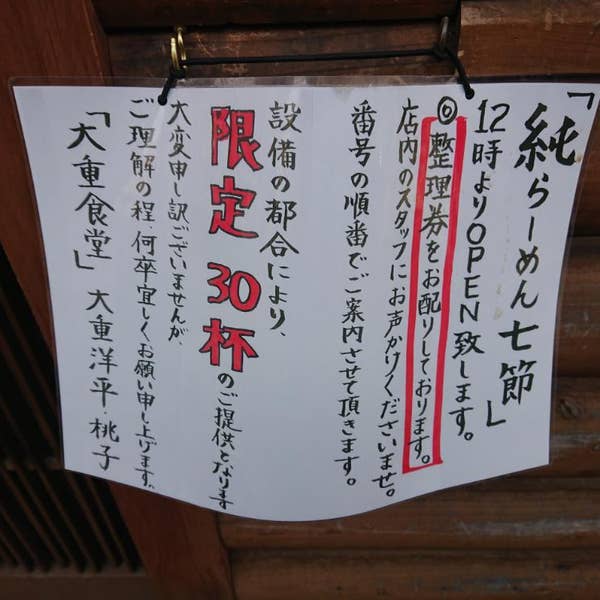 「純らーめん七節」
12時よりOPEN致します。
◎整理券をお配りしております。
店内のスタッフにお声かけくださいませ。
番号の順番でご案内させて頂きます。
設備の都合により、
限定30杯のご提供となります
大変申し訳ございませんが、
ご理解の程、何卒宜しくお願い申し上げます。
「大重食堂」大重洋平・桃子